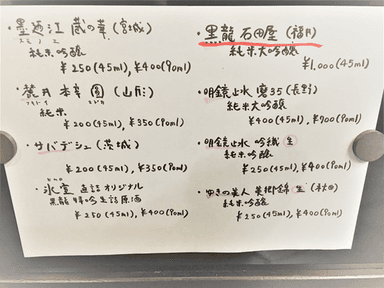 ・墨廼江 蔵の華 (宮城)
スミノエ
純米吟醸
¥250(45ml), ¥400(90ml)
(山形)
純米
¥200(45ml), ¥350(90ml)
・サバデシュ(茨城)
¥200(45ml), ¥350(90ml)
・氷室 直詰オリジナル
黒龍 吟醸生詰原酒
¥250(45ml), ¥400(90ml)
・黒龍 石田屋 (福井)
純米大吟醸
¥1,000(45ml)
・明鏡止水 磨35(長野)
純米大吟醸
¥400(45ml), ¥700(90ml)
・明鏡止水 吟織 生
純米吟醸
¥250(45ml), ¥400(90ml)
・ゆきの美人 美郷錦 生 (秋田)
純米吟醸
¥250(45ml), ¥400(90ml)